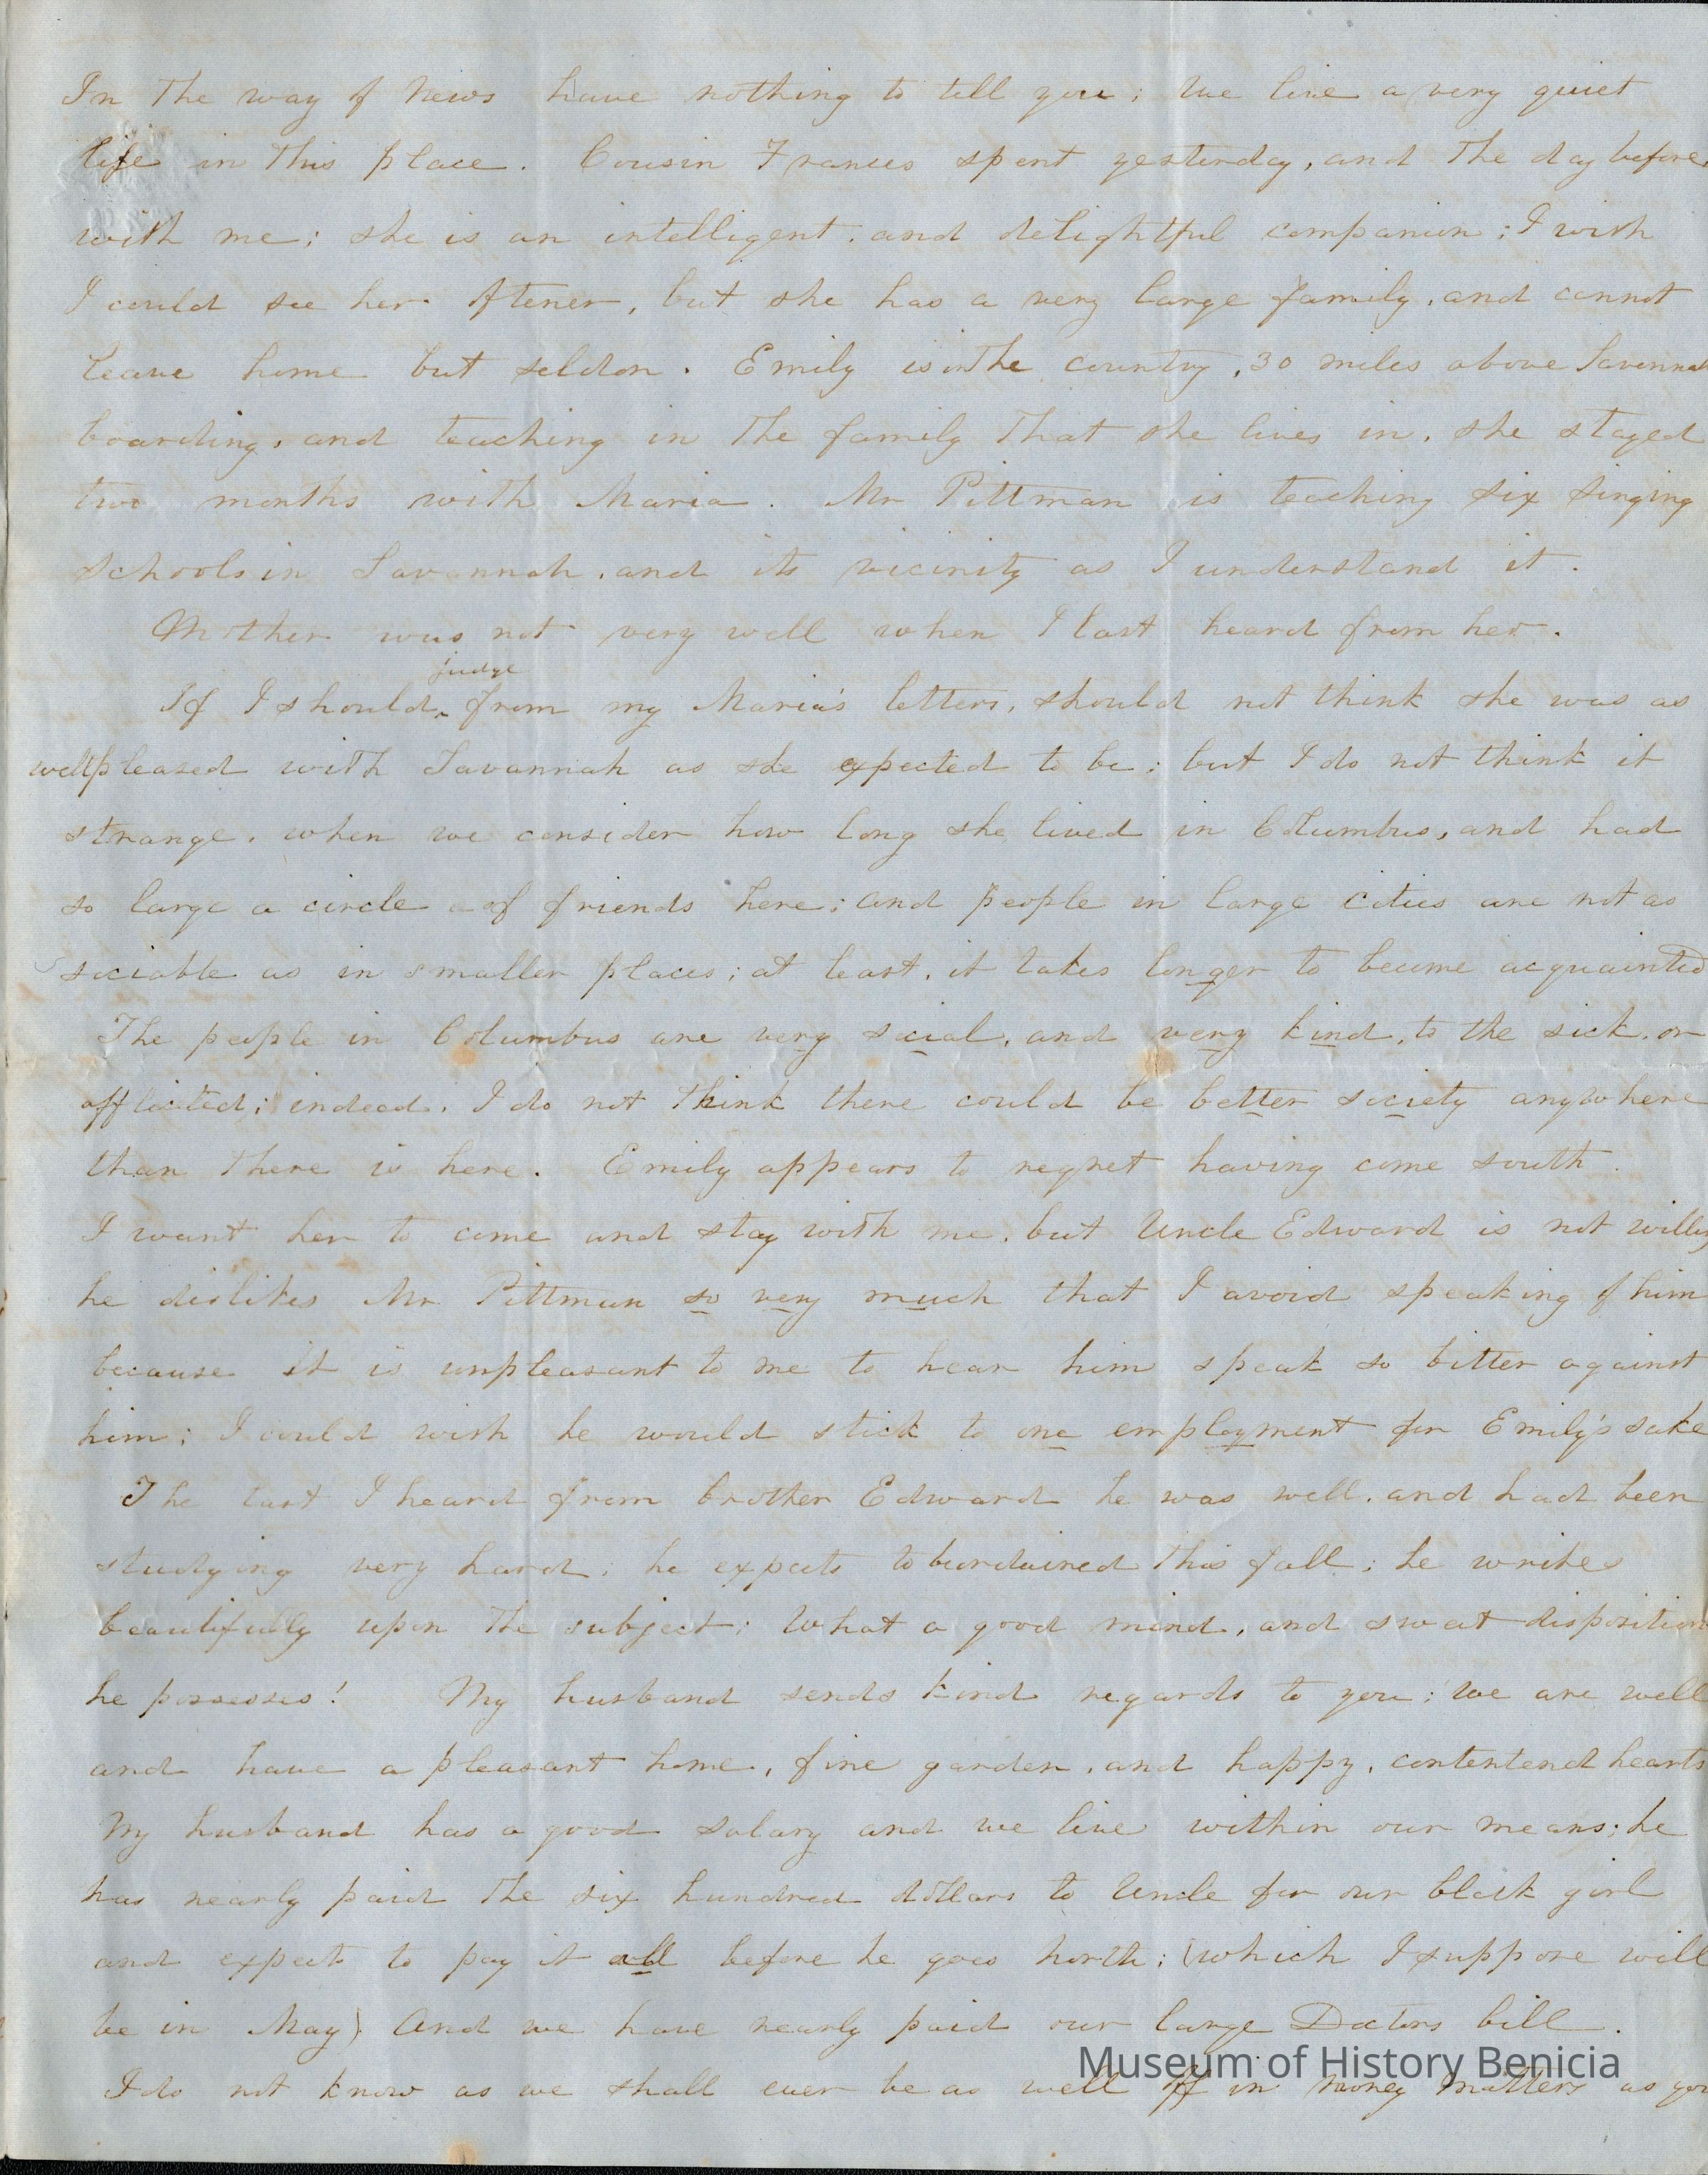 In the way of News have nothing to tell you; We live a very quiet
life in this place. Cousin Frances spent yesterday, and the day before
with me; she is an intelligent, and delightful companion; I wish
I could see her oftener, but she has a very large family, and cannot
leave home but seldon. Emily is in the country, 30 miles above Savannah
boarding, and teaching in the family that she lives in, she stayed
two months with Maria. Mr Pittman is teaching six singing
schools in Savannah, and its vicinity as I understand it.
Mother was not very well when I last heard from her.
judge
If I should ^ from my Maria's letters, should not think she was as
well pleased with Savannah as she expected to be; but I do not think it
strange, when we consider how long she lived in Columbus, and had
so large a circle of friends here; and people in large cities are not as
sociable as in smaller places; at least, it takes longer to become acquainted
The people in Columbus are very social, and very kind, to the sick, or
afflicted; indeed, I do not think there could be better society anywhere
than there is here. Emily appears to regret having come south.
I want her to come and stay with me, but Uncle Edward is not willing
he dislikes Mr Pittman so very much that I avoid speaking of him
because it is unpleasant to me to hear him speak so bitter against
him; I could wish he would stick to one employment for Emily's sake
The last I heard from brother Edward he was well, and had been
studying very hard; he expects to be ordained this fall; he writes
beautifully upon the subject; What a good mind, and sweat disposition
he possesses! My husband sends kind regards to you; We are well
and have a pleasant home, fine garden, and happy, contentend hearts
My husband has a good salary and we live within our means; he
has nearly paid the six hundred dollars to Uncle for our black girl
and expects to pay it all before he goes north; (which I suppose will
be in May) And we have nearly paid our large Doctors bill.
I do not know as we shall ever be as well off in money matters as you
Museum of History Benicia